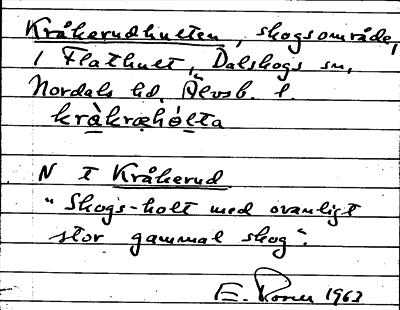 Kråkerudhulten, skogsområde,
i Flathult, Dalskogs sn,
Nordals hd, Älvsb. l.
kràkræhó̤lta
N t Kråkerud
"Skogs-holt med ovanligt
stor gammal skog".
E. 1963